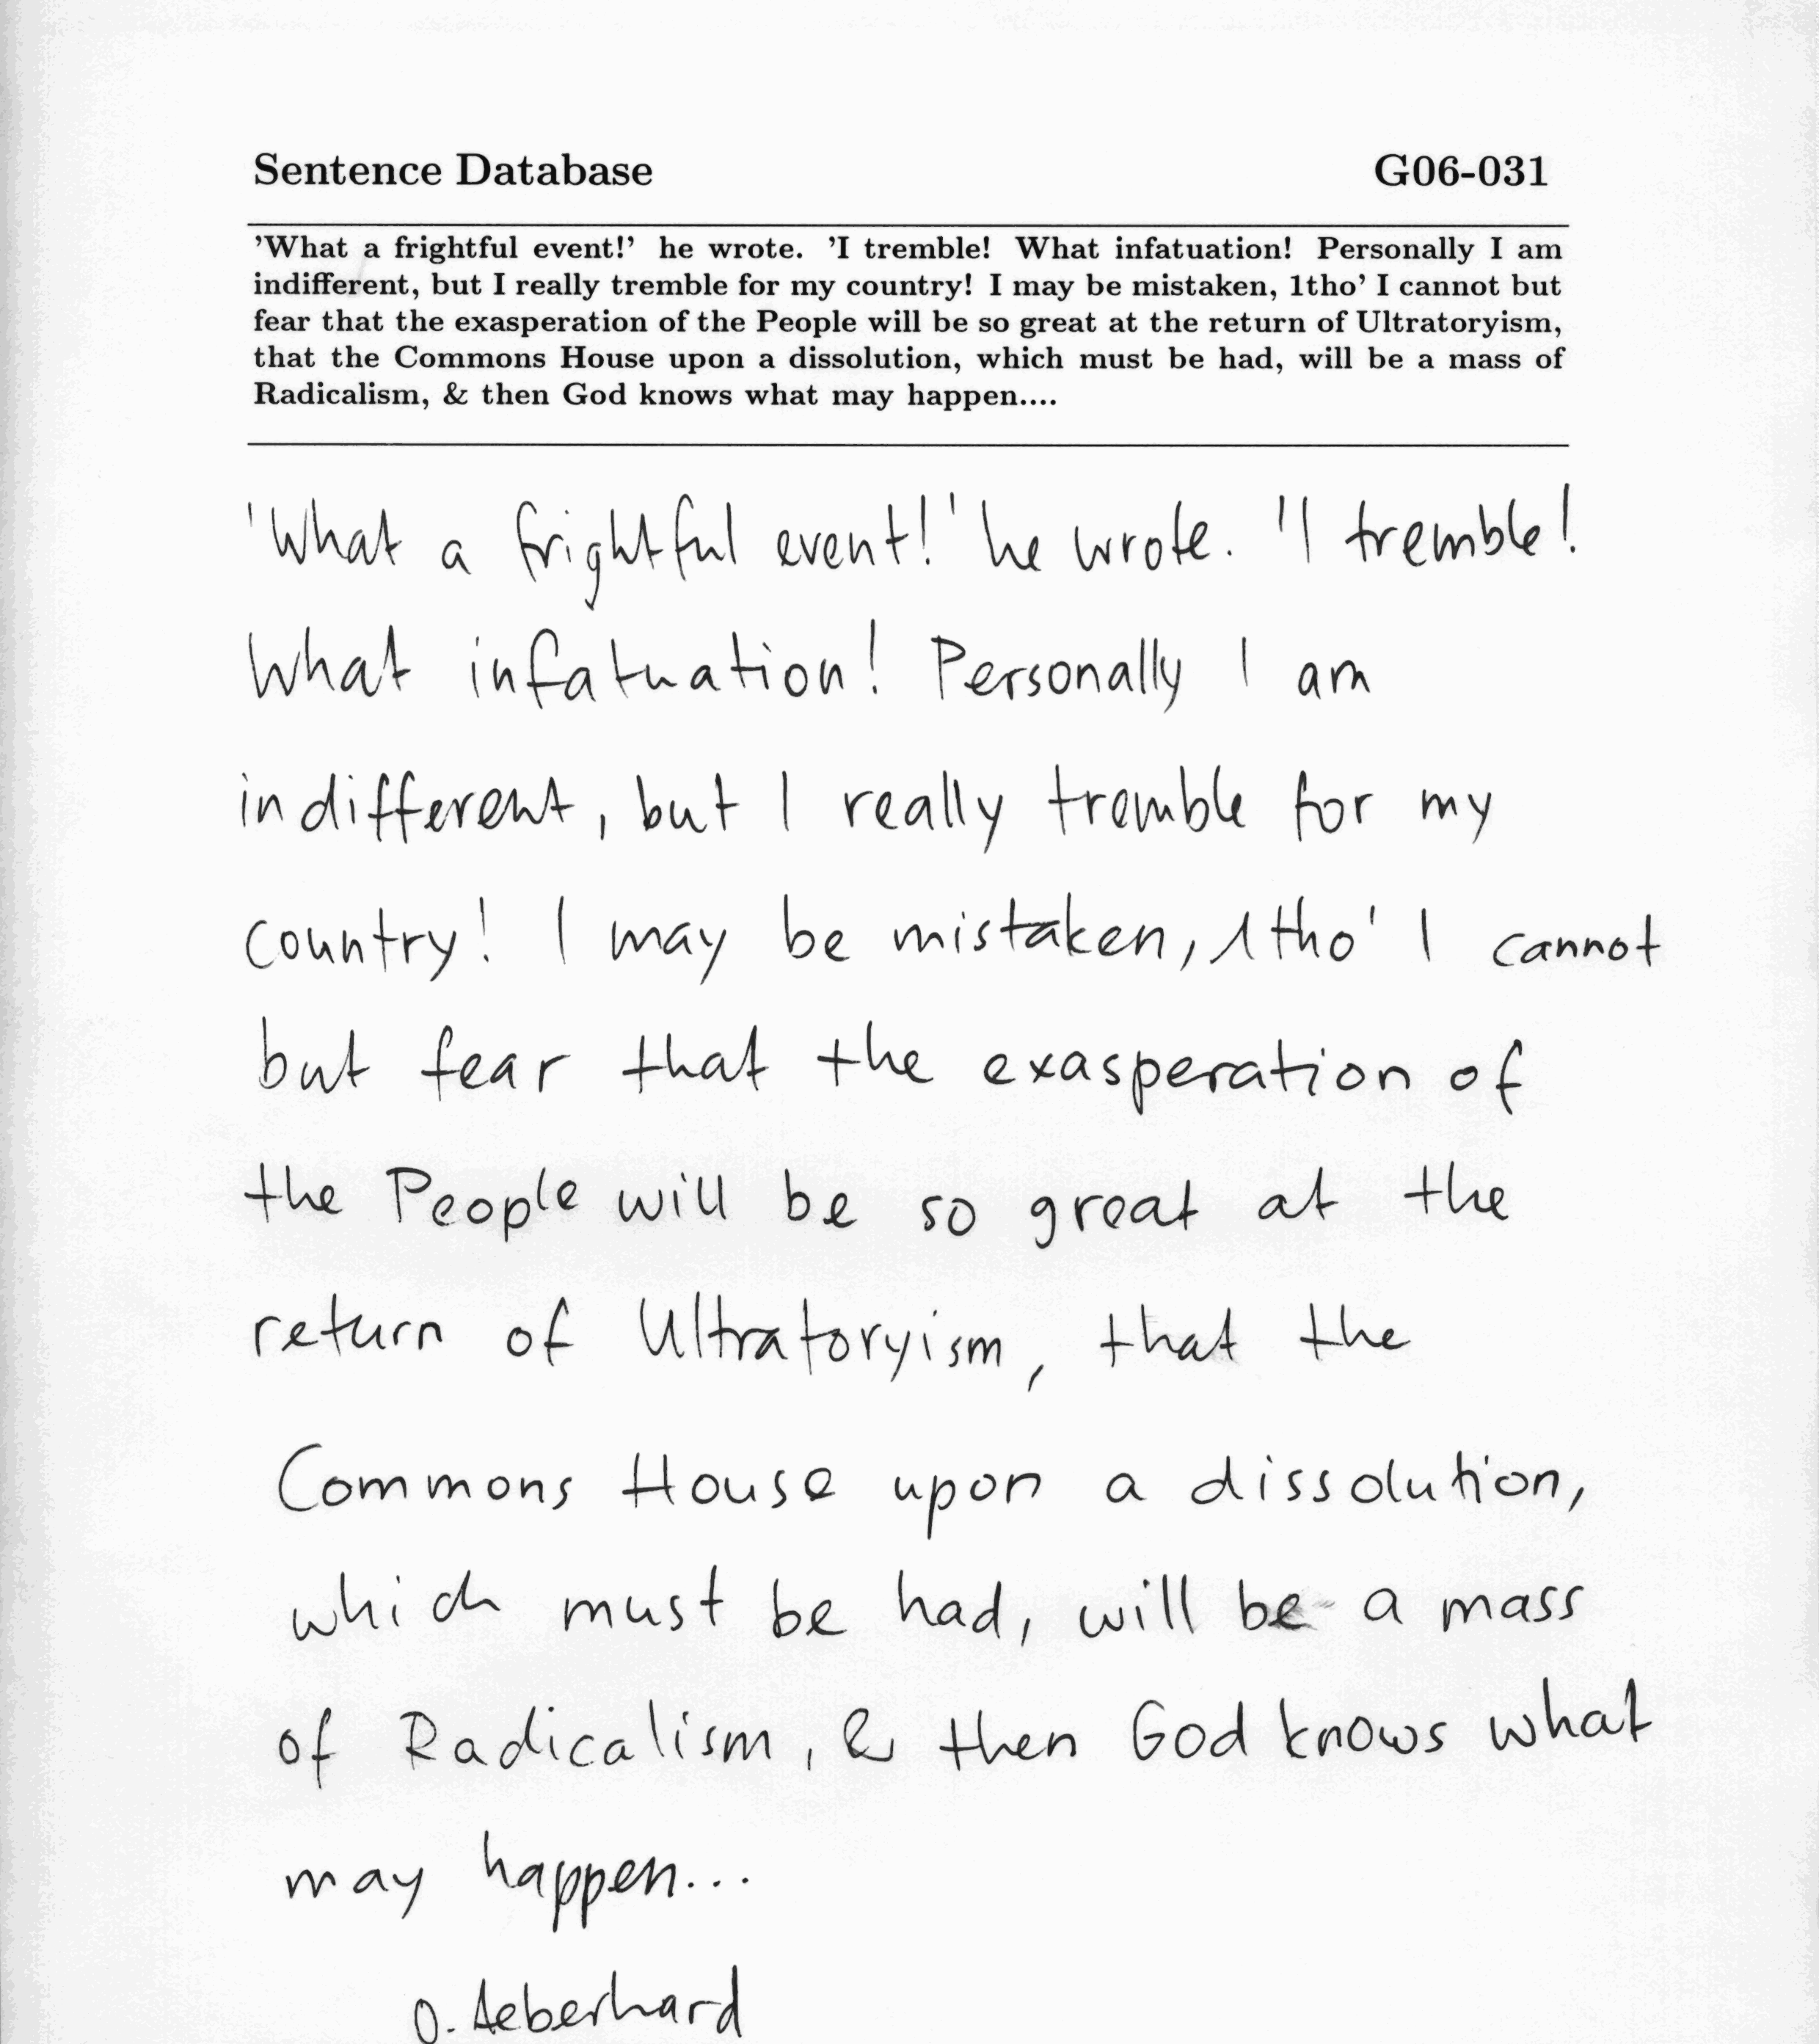 Sentence Database G06-031
’What a frightful event!’ he wrote. ’I tremble! What infatuation! Personally I am
indifferent, but I really tremble for my country! I may be mistaken, 1tho’ I cannot but
fear that the exasperation of the People will be so great at the return of Ultratoryism,
that the Commons House upon a dissolution, which must be had, will be a mass of
Radicalism, & then God knows what may happen....
'What a frightful event!' he wrote. 'I tremble!
What infatuation! Personally I am
indifferent, but I really tremble for my
country! I may be mistaken, 1tho' I cannot
but fear that the exasperation of
the People will be so great at the
return of Ultratoryism, that the
Commons House upon a dissolution,
which must be had, will be a mass
of Radicalism, & then God knows what
may happen...
O. Aeberhard